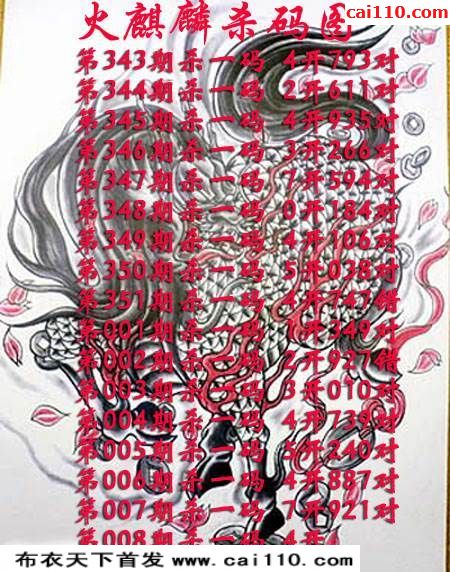 cai110.com
火麒麟杀码图
第343期杀一码 4开793对
第344期杀一码 2开611对
第345期杀一码 4开935对
第346期杀一码 3开266对
第347期杀一码 7开594对
第348期杀一码 0开184对
第349期杀一码 4开106对
第350期杀一码 5开038对
第351期杀一码 4开747错
第001期杀一码 1开349对
第002期杀一码 2开927错
第003期杀一码 3开010对
第004期杀一码 4开739对
第005期杀一码 5开240对
第006期杀一码 4开887对
第007期杀一码 7开921对
第008期杀一码 4开
布衣天下首发 www.cai110.com